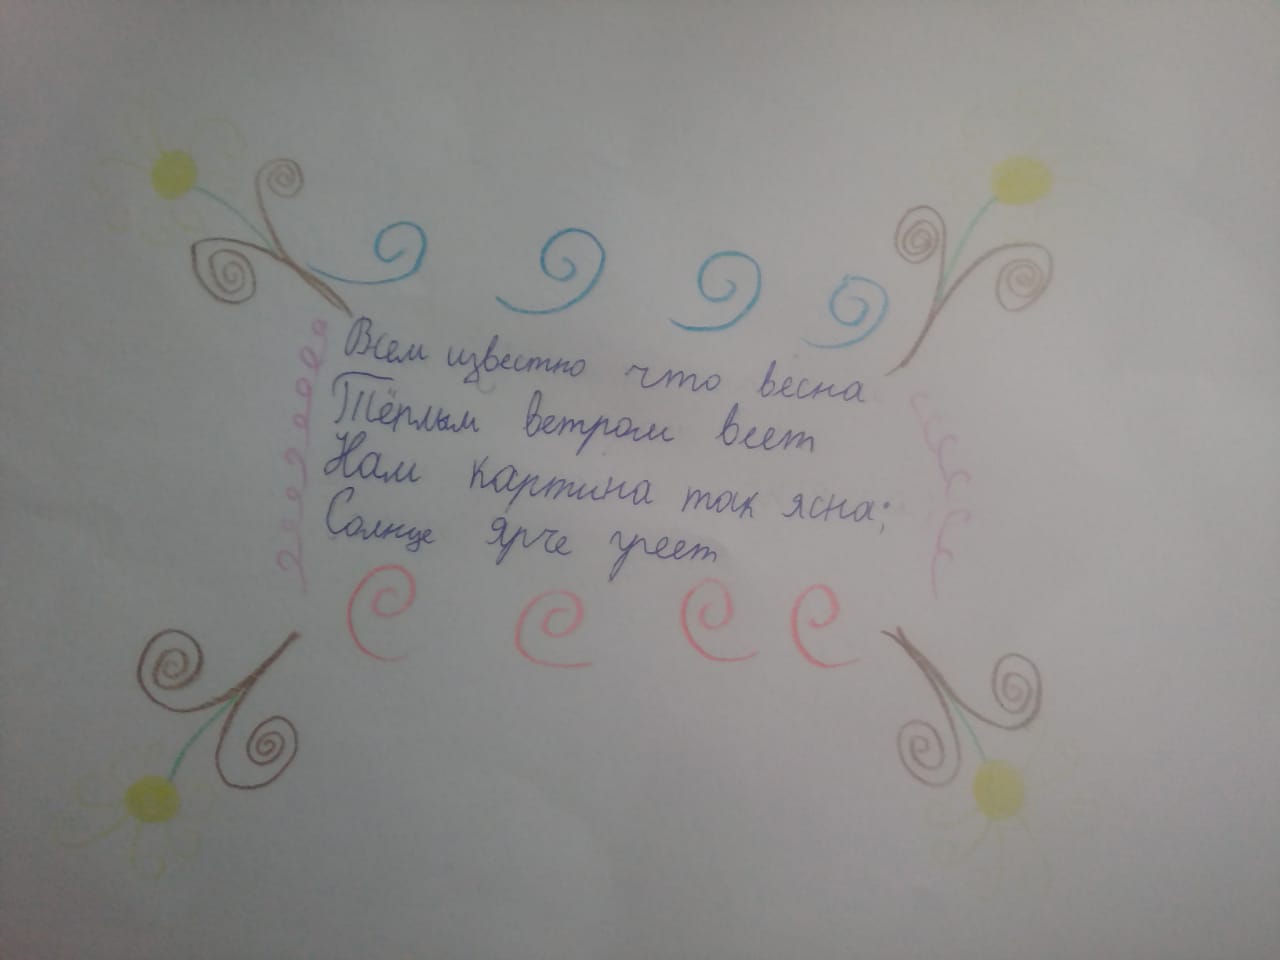 Всем известно что весна
Тёплым ветром веет
Нам картина так ясна:
Солнце ярче греет